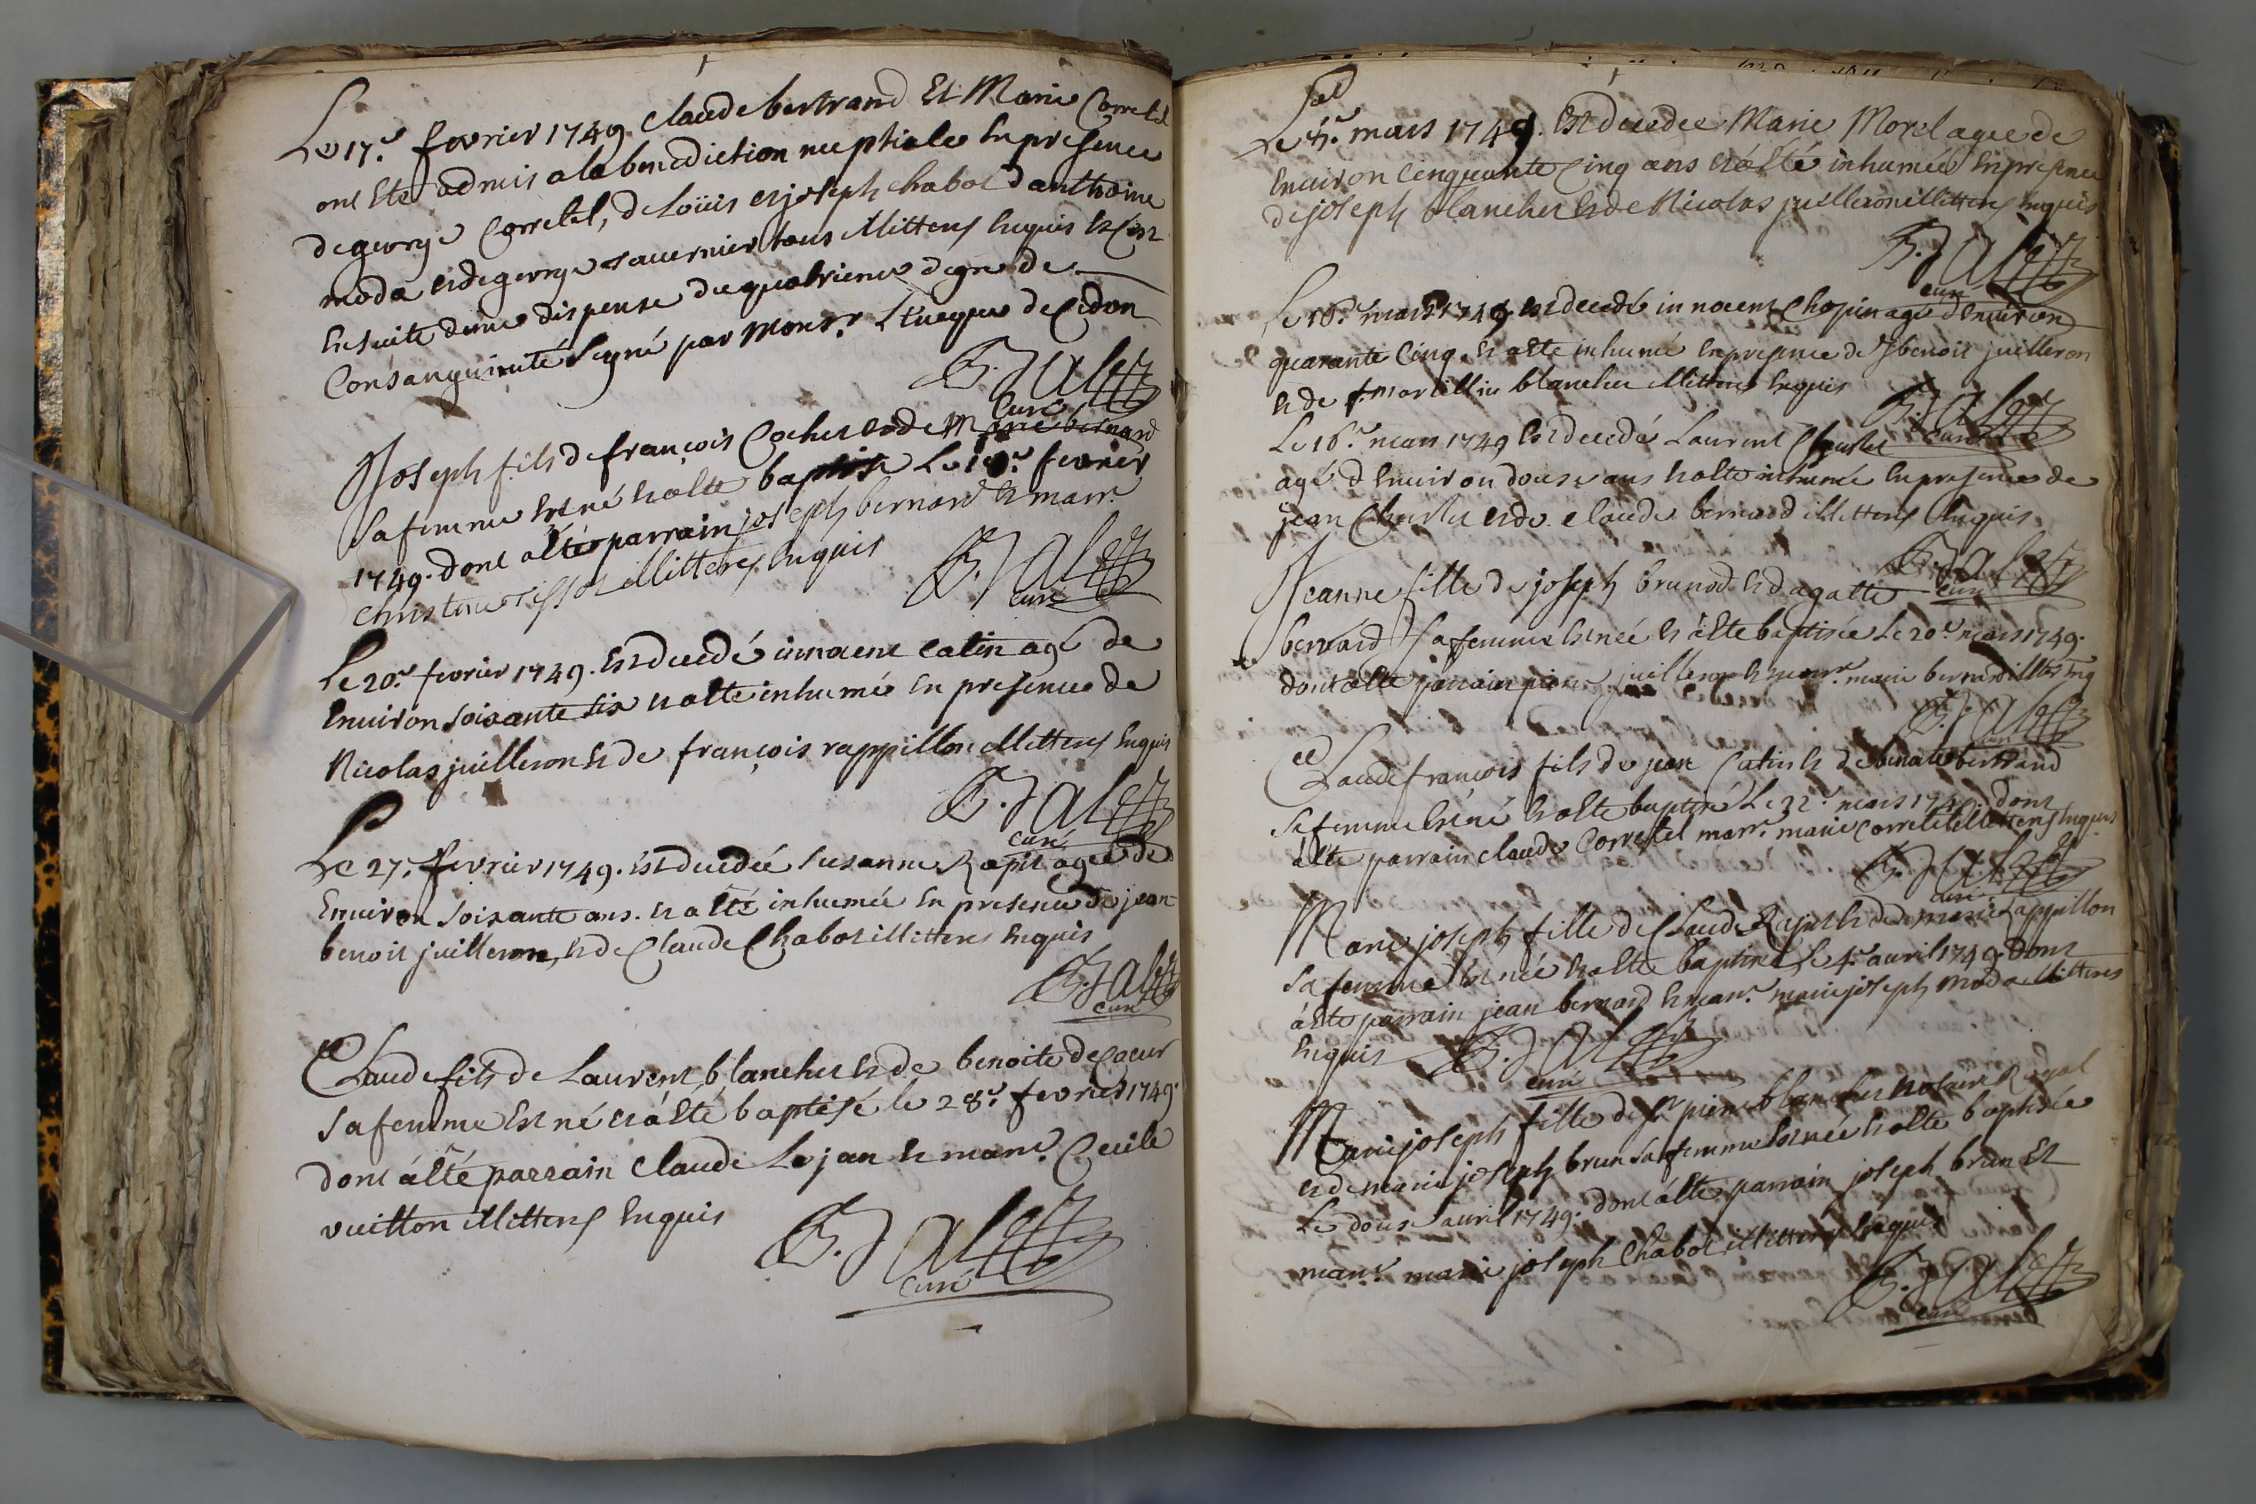 Le 17.e fevrier 1749 claude bertrand Et Marie Corretel
ont Eté admis a la benediction nuptiale En presence
de george Corretel, de Loüis et joseph chabot d'anthoine
moda et de george tavernier tous illitterez Enquis Et c'est
Ensuite d'une dispense du quatrieme degre de
Consanguinité signé par Monsr. L'Eveque de Cidon
curé
Joseph fils de françois Cochet et de Marie bernard
sa femme Est né Et a Eté baptisé Le fevrier
1749. dont a Eté parrain joseph bernard Et marr.
christine illitterez Enquis
curé
Le 20.e fevrier 1749. Est decedé innocent catin agé de
Environ soixante six Et a Eté inhumé En presence de
Nicolas juilleron Et de françois rappillon illitterez Enquis
curé
Le 27.e fevrier 1749. Est decedée susanne Rapit agée de
Environ soixante ans. Et a Eté inhumée En presence de jean
benoit juilleron, Et de Claude Chabot illitteres Enquis
curé
Claude fils de Laurent blanchet Et de benoite de Coeur
sa femme Est né Et a Eté baptisé le 28.e fevrier 1749.
dont a Eté parrain Claude Le jan Et marr.e Cecile
vuitton illitterez Enquis
curé
Le mars 1749. Est decedée Marie Morel agée de
Environ Cenquante Cinq ans Et a Eté inhumée En presence
de joseph blanchet Et de Nicolas juilleron illitterez Enquis
curé
Le 16.e mars 1749 Est decedé innocent Chopin agé d'Environ
quarante Cinq. Et a Eté inhumé En presence de benoit juilleron
Et de marcellin blanchet illitteres Enquis
curé
Le 16.e mars 1749 Est decedé Laurent
agé d'Environ douse ans Et a Eté inhumé En presence de
jean Et de Claude bernard illitterez Enquis.
curé
Jeanne fille de joseph brunod Et d'agatte
bernard sa femme Est née Et a Eté baptisée Le 20.e mars 1749.
dont a Eté parrain pierre juilleron Et marr.e marie bernard
curé
Claude françois fils de jean Catin Et de benoite bertrand
sa femme Est né Et a Eté baptisé Le 22.e mars 1749. dont
a Eté parrain claude Corretel marr.e marie corretel illitterez Enquis
curé
Marie joseph fille de Claude Rapit Et de marie rappillon
sa femme Est née Et a Eté baptisée Le 4.e avril 1749. dont
a Eté parrain jean bernard Et marr.e marie joseph moda illitteres
Enquis
curé
Marie joseph fille de Sr pierre blanchet notaire Royal
et de marie joseph brun sa femme Est née Et a Eté baptisée
Le douse avril 1749. dont a Eté parrain joseph brun Et
marr.e marie joseph Chabot illitterez Enquis
curé